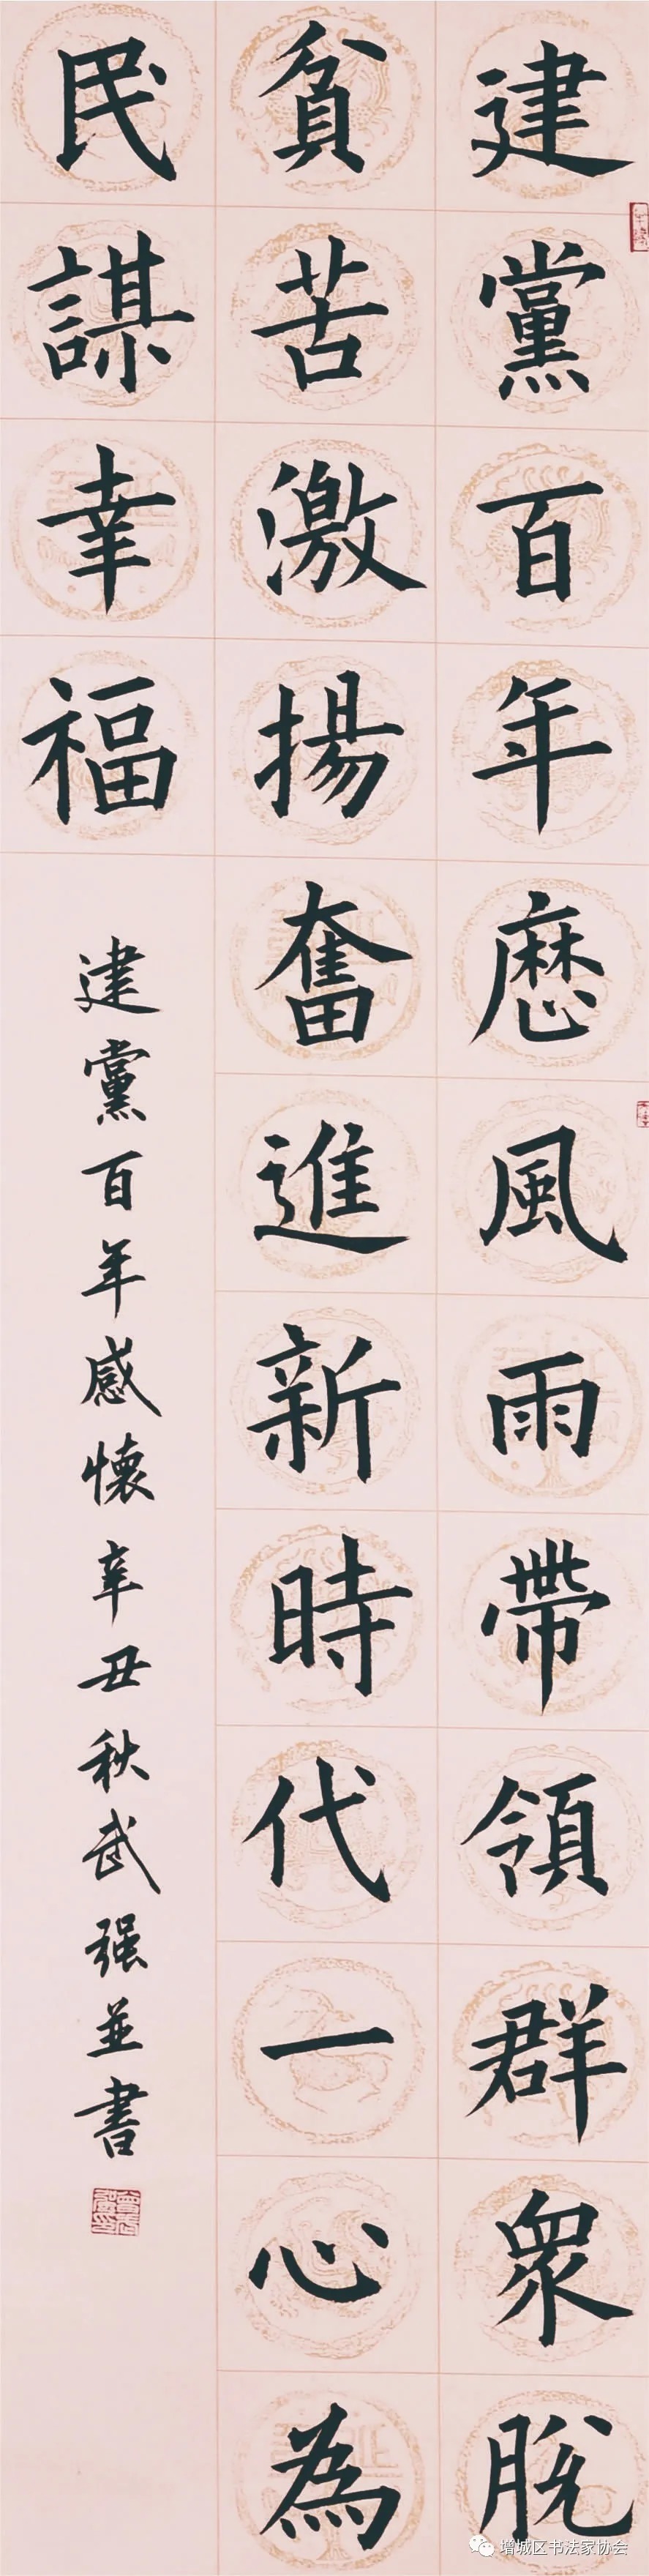 建黨百年厯風雨帶領群衆脫
貧苦激揚奮進新時代一心為
民謀幸福
建黨百年感懷辛丑秋武强並書
增城区书法家协会